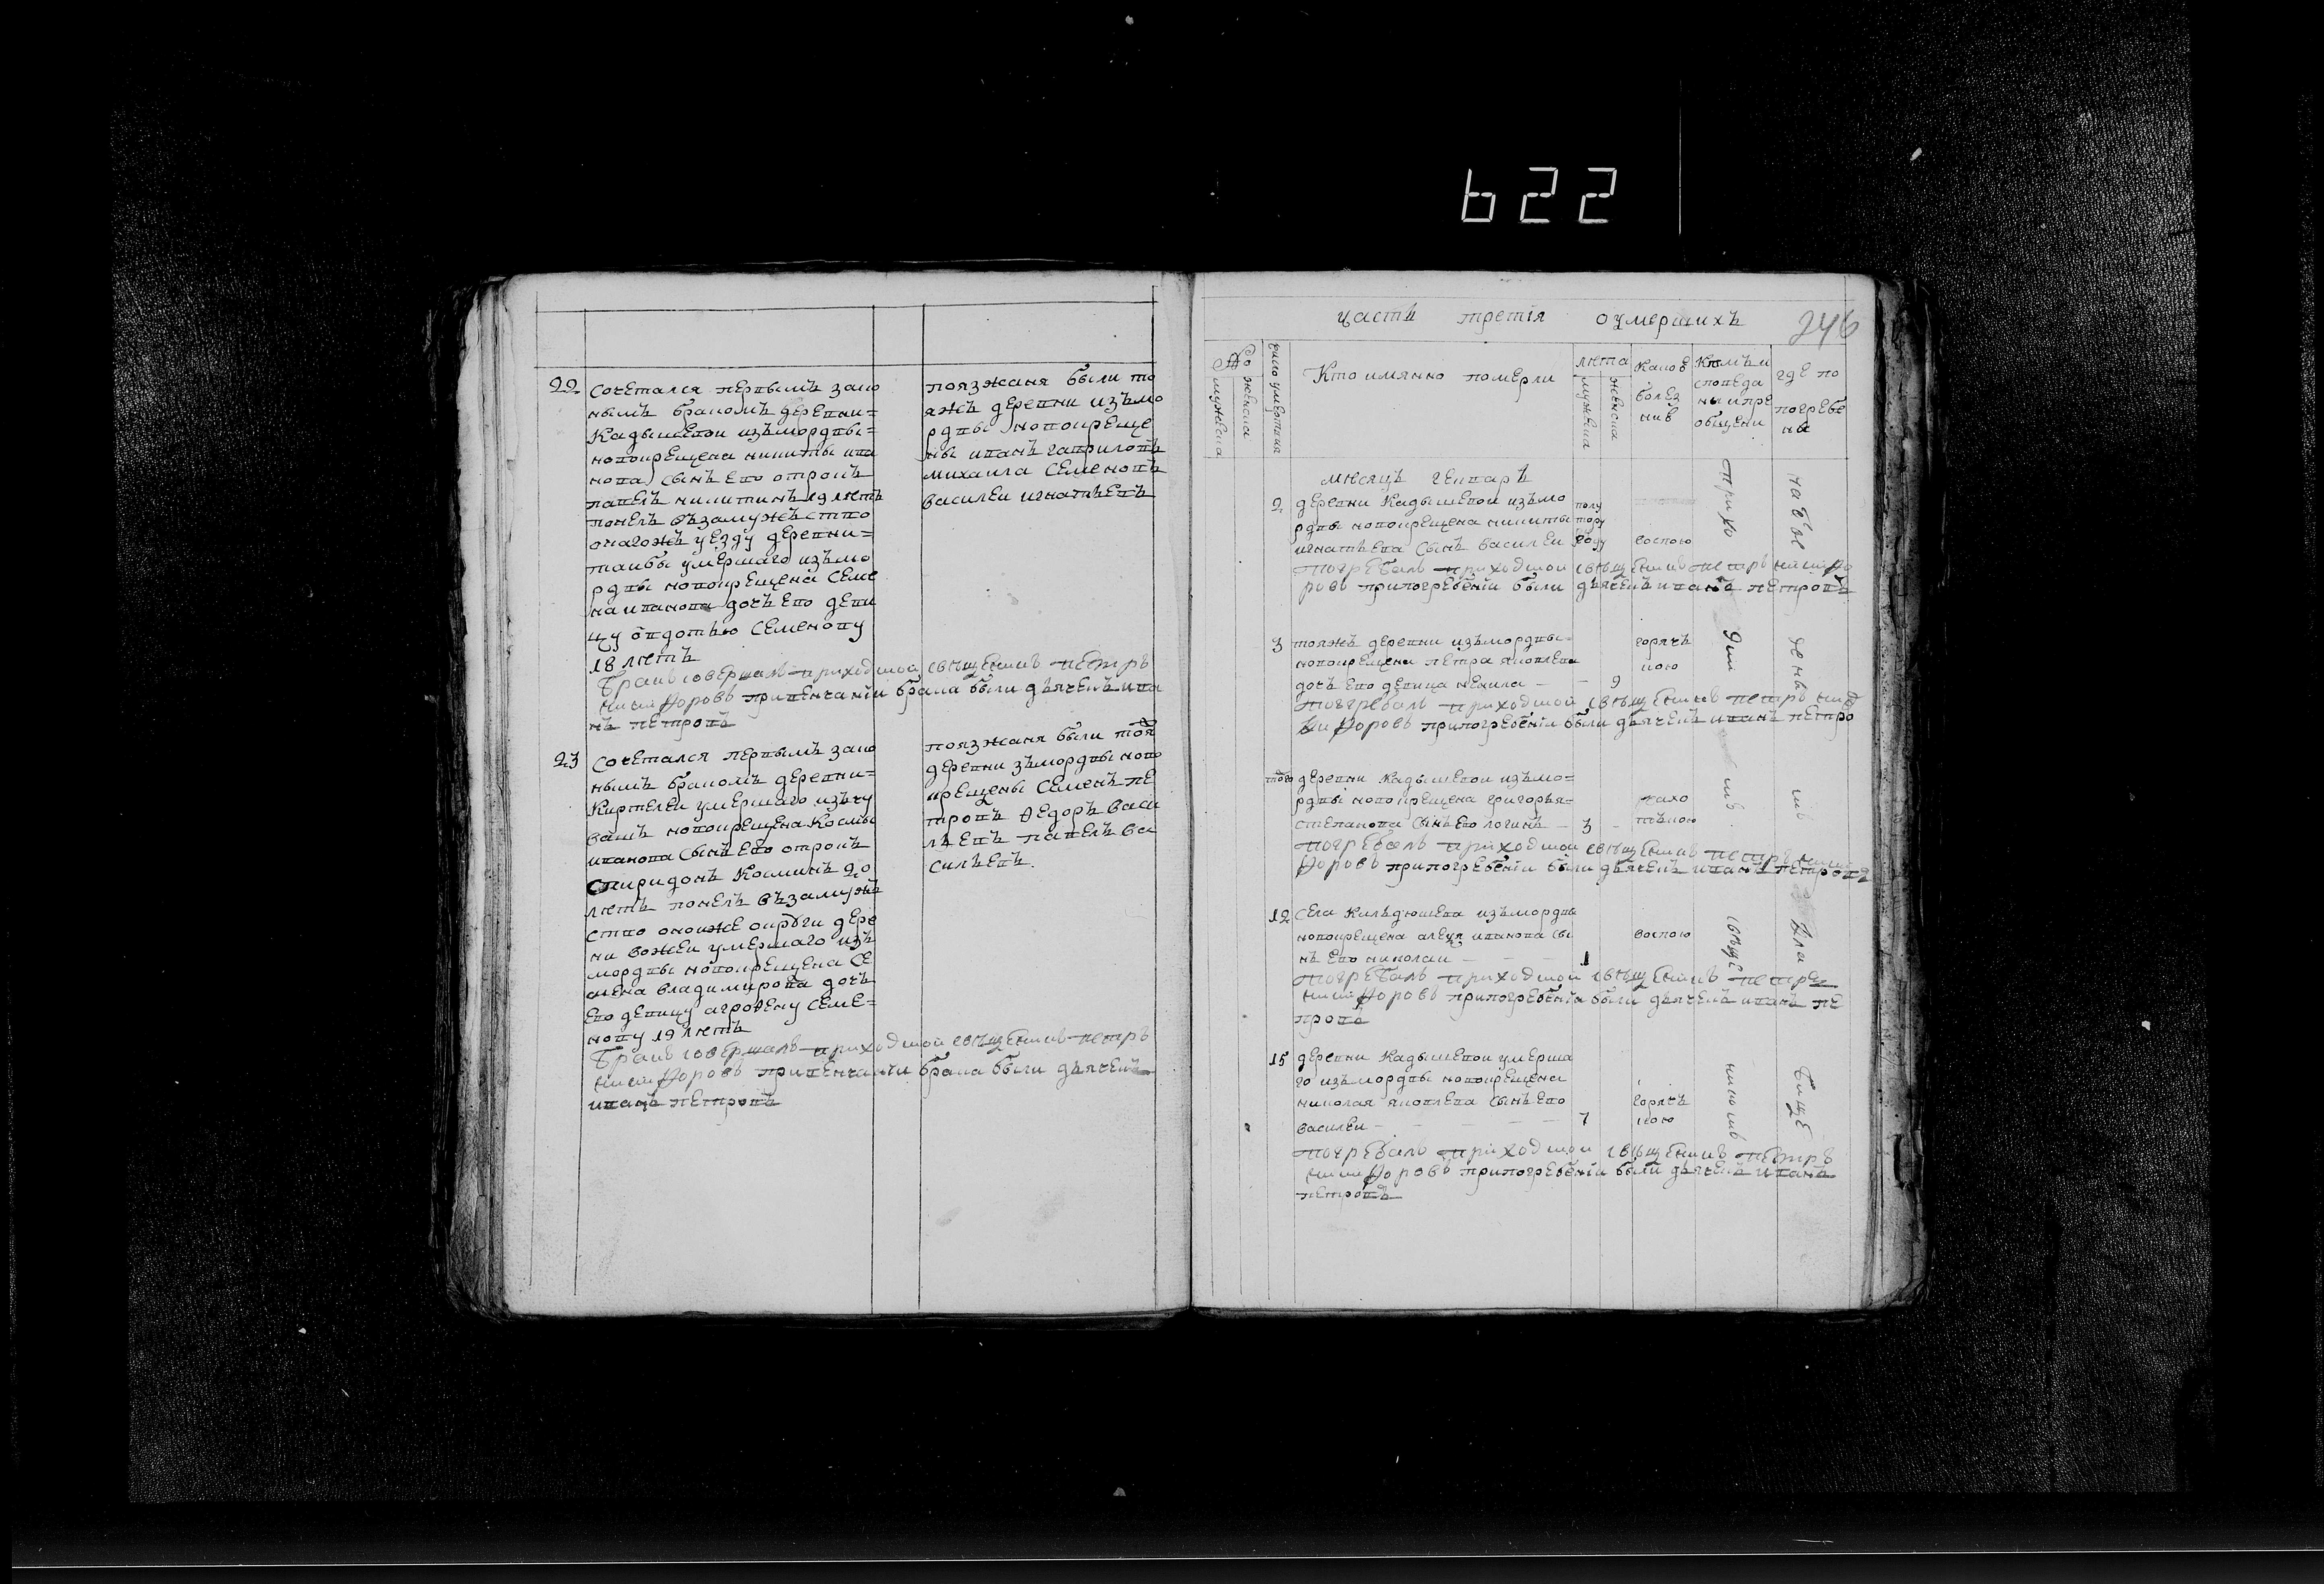 622
22 сочетался первымъ зако
ннымъ бракомъ деревни=
Кадышевои изъмордвы=
новокрещена никиты ива
нова сынъ ево отрокъ
павелъ никитинъ 19 летъ
понелъ въ замужество
деревни=
умершаго изъмо
рдвы новокрещена Семе
на иванова дочь ево деви
цу овдотью Семенову
18 летъ
Бракъ совершалъ приходской священникъ петръ
никифоровъ привенчаніи брака были дьячекъ ива
нъ петровъ
поязжаня были то
яжъ деревни изъмо
рдвы новокреще
ны иванъ гавриловъ
михаила Семеновъ
василеи игнатьевъ
23 Сочетался первымъ зако
ннымъ бракомъ деревни=
Киртелеи умершаго изъчу
вашъ новокрещена Космы
иванова сынъ ево отрокъ
спиридонъ Косминъ 20
летъ понелъ въ замуже
ство оноиже округи дере
вни вожеи умершаго изъ
мордвы новокрещена Се
мена владимирова дочь
ево девицу агрофену Семе=
нову 19 летъ
Бракъ совершалъ приходской священникъ петръ
никифоровъ привенчаніи брака были дьячекъ
иванъ петровъ
поязжаня были тоя
деревни зъмордвы ново
крещены Семенъ пе
тровъ Ѳедоръ Васи
льевъ павелъ ва
сильевъ
246
часть третія оумершихъ
мужеска
женска
число умертвия
Кто имянно померли
лета
мужеска
женска
Какою
болез
нию
Кемъ и
споведа
ны и пре
общени
где по
погребе
ны
месяцъ генваръ
2 деревни Кадышевои изъмо
рдвы новокрещена никиты
игнатьева сынъ василеи
полу
тору
году
воспою
погребалъ приходской священникъ петръ никифо
ровъ припогребеніи были дьячекъ иванъ петровъ
3 тояжъ деревни изъмордвы=
новокрещена петра яковлева
дочь ево девица некила — — 9
горячь
кою
погребалъ приходской священникъ петръ ни
кифоровъ припогребеніи были дьячекъ иванъ петро
того деревни Кадышевои изъмо=
рдвы новокрещена григорья=
степанова сынъ ево логинъ — 3 —
чахо
тъкою
погребалъ приходской священникъ петръ ники
форовъ припогребеніи были дьячекъ иванъ петровъ
12 села Кильдюшева изъмордвы
новокрещена алеѯя иванова сы
нъ ево николаи — — 1
воспою
погребалъ приходской священникъ петръ
никифоровъ припогребеніи были дьячекъ иванъ пе
тровъ
15 деревни Кадышевои умерша
го изъмордвы новокрещена
николая яковлева сынъ ево
василеи — — — — 7
горячь
кою
погребалъ приходской священникъ петръ
никифоровъ припогребеніи были дьячекъ иванъ
петровъ
прихо
дски
мъ
свяще
нникомъ
наѡве
денно
мъ
кла
бище